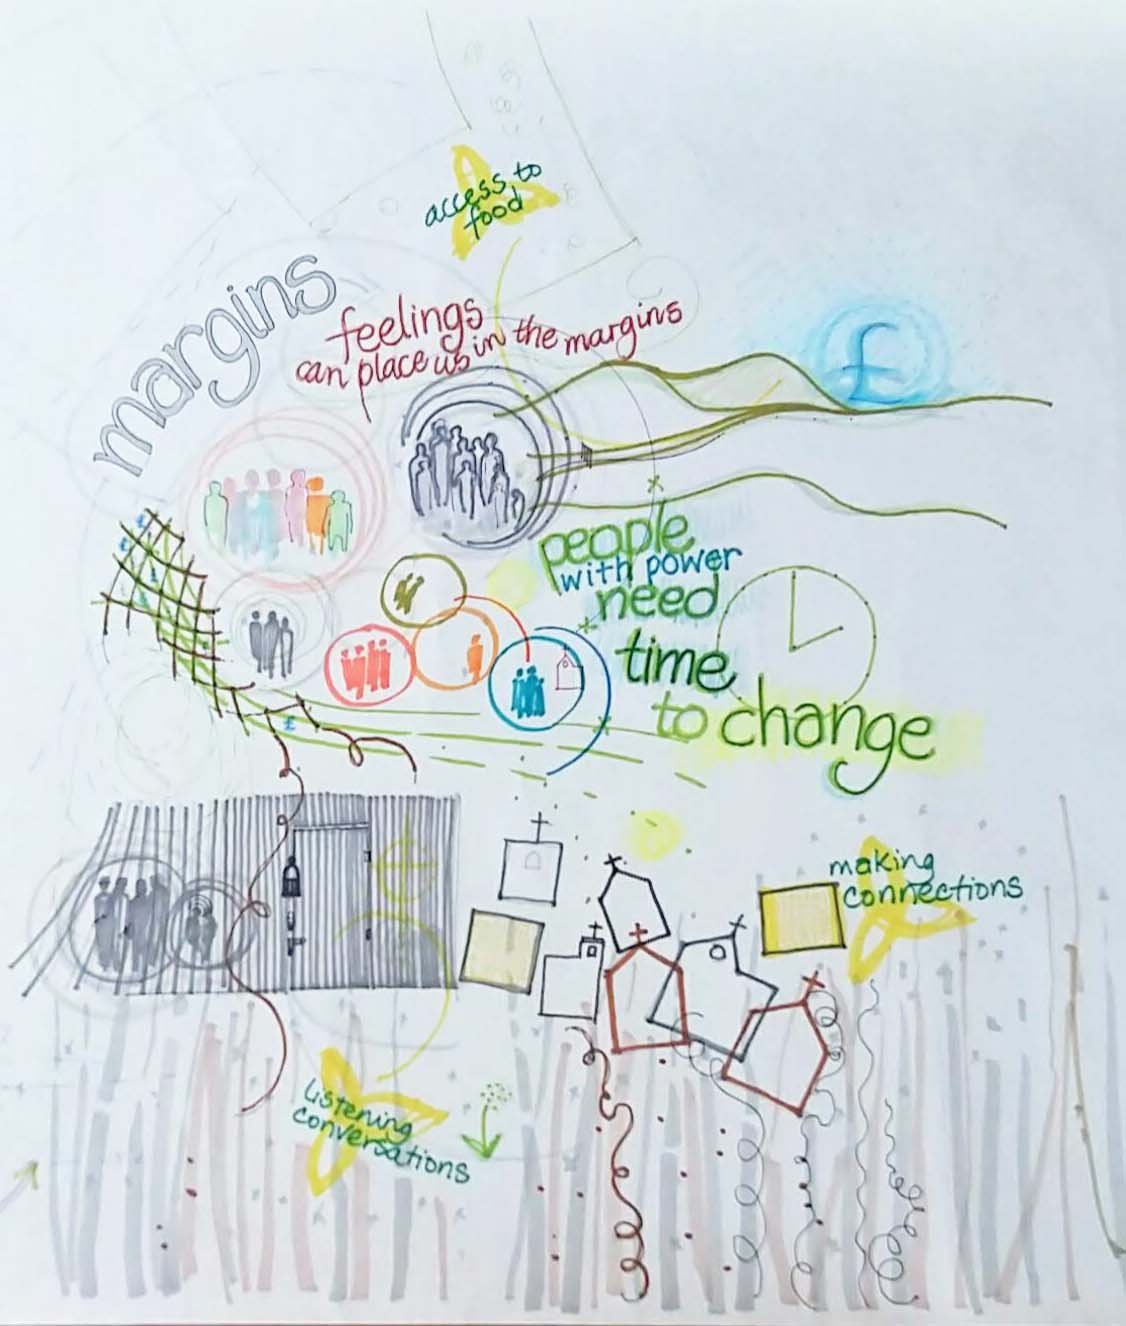 access to
food
margins
feelings
can place us in the margins
£
people
with power
need
time
to change
£
making
connections
Listening
conversations